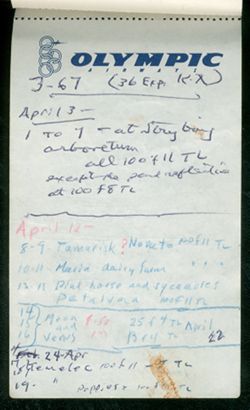 OLYMPIC
AIRWAYS
3-67 (36 Exp. KX)
April 3 -
1 to 7 - at Strybing
arboretum
all 100 f 11 TL
except the pond reflection
at 100 f 8 TL
April 12 -
8-9 Tamarisk ? Novato 100 f 11 TL
10-11 Marin dairy farm " " "
12-13 Blue house and sycamores
Petaluma 100 f 11 TL
14
15 Moon f-50 25 f 4 TL April
16 and Venus 13 f 4 TL 22
24 Apr
100 f 11 - TL
19- " Poppies 100 f TL